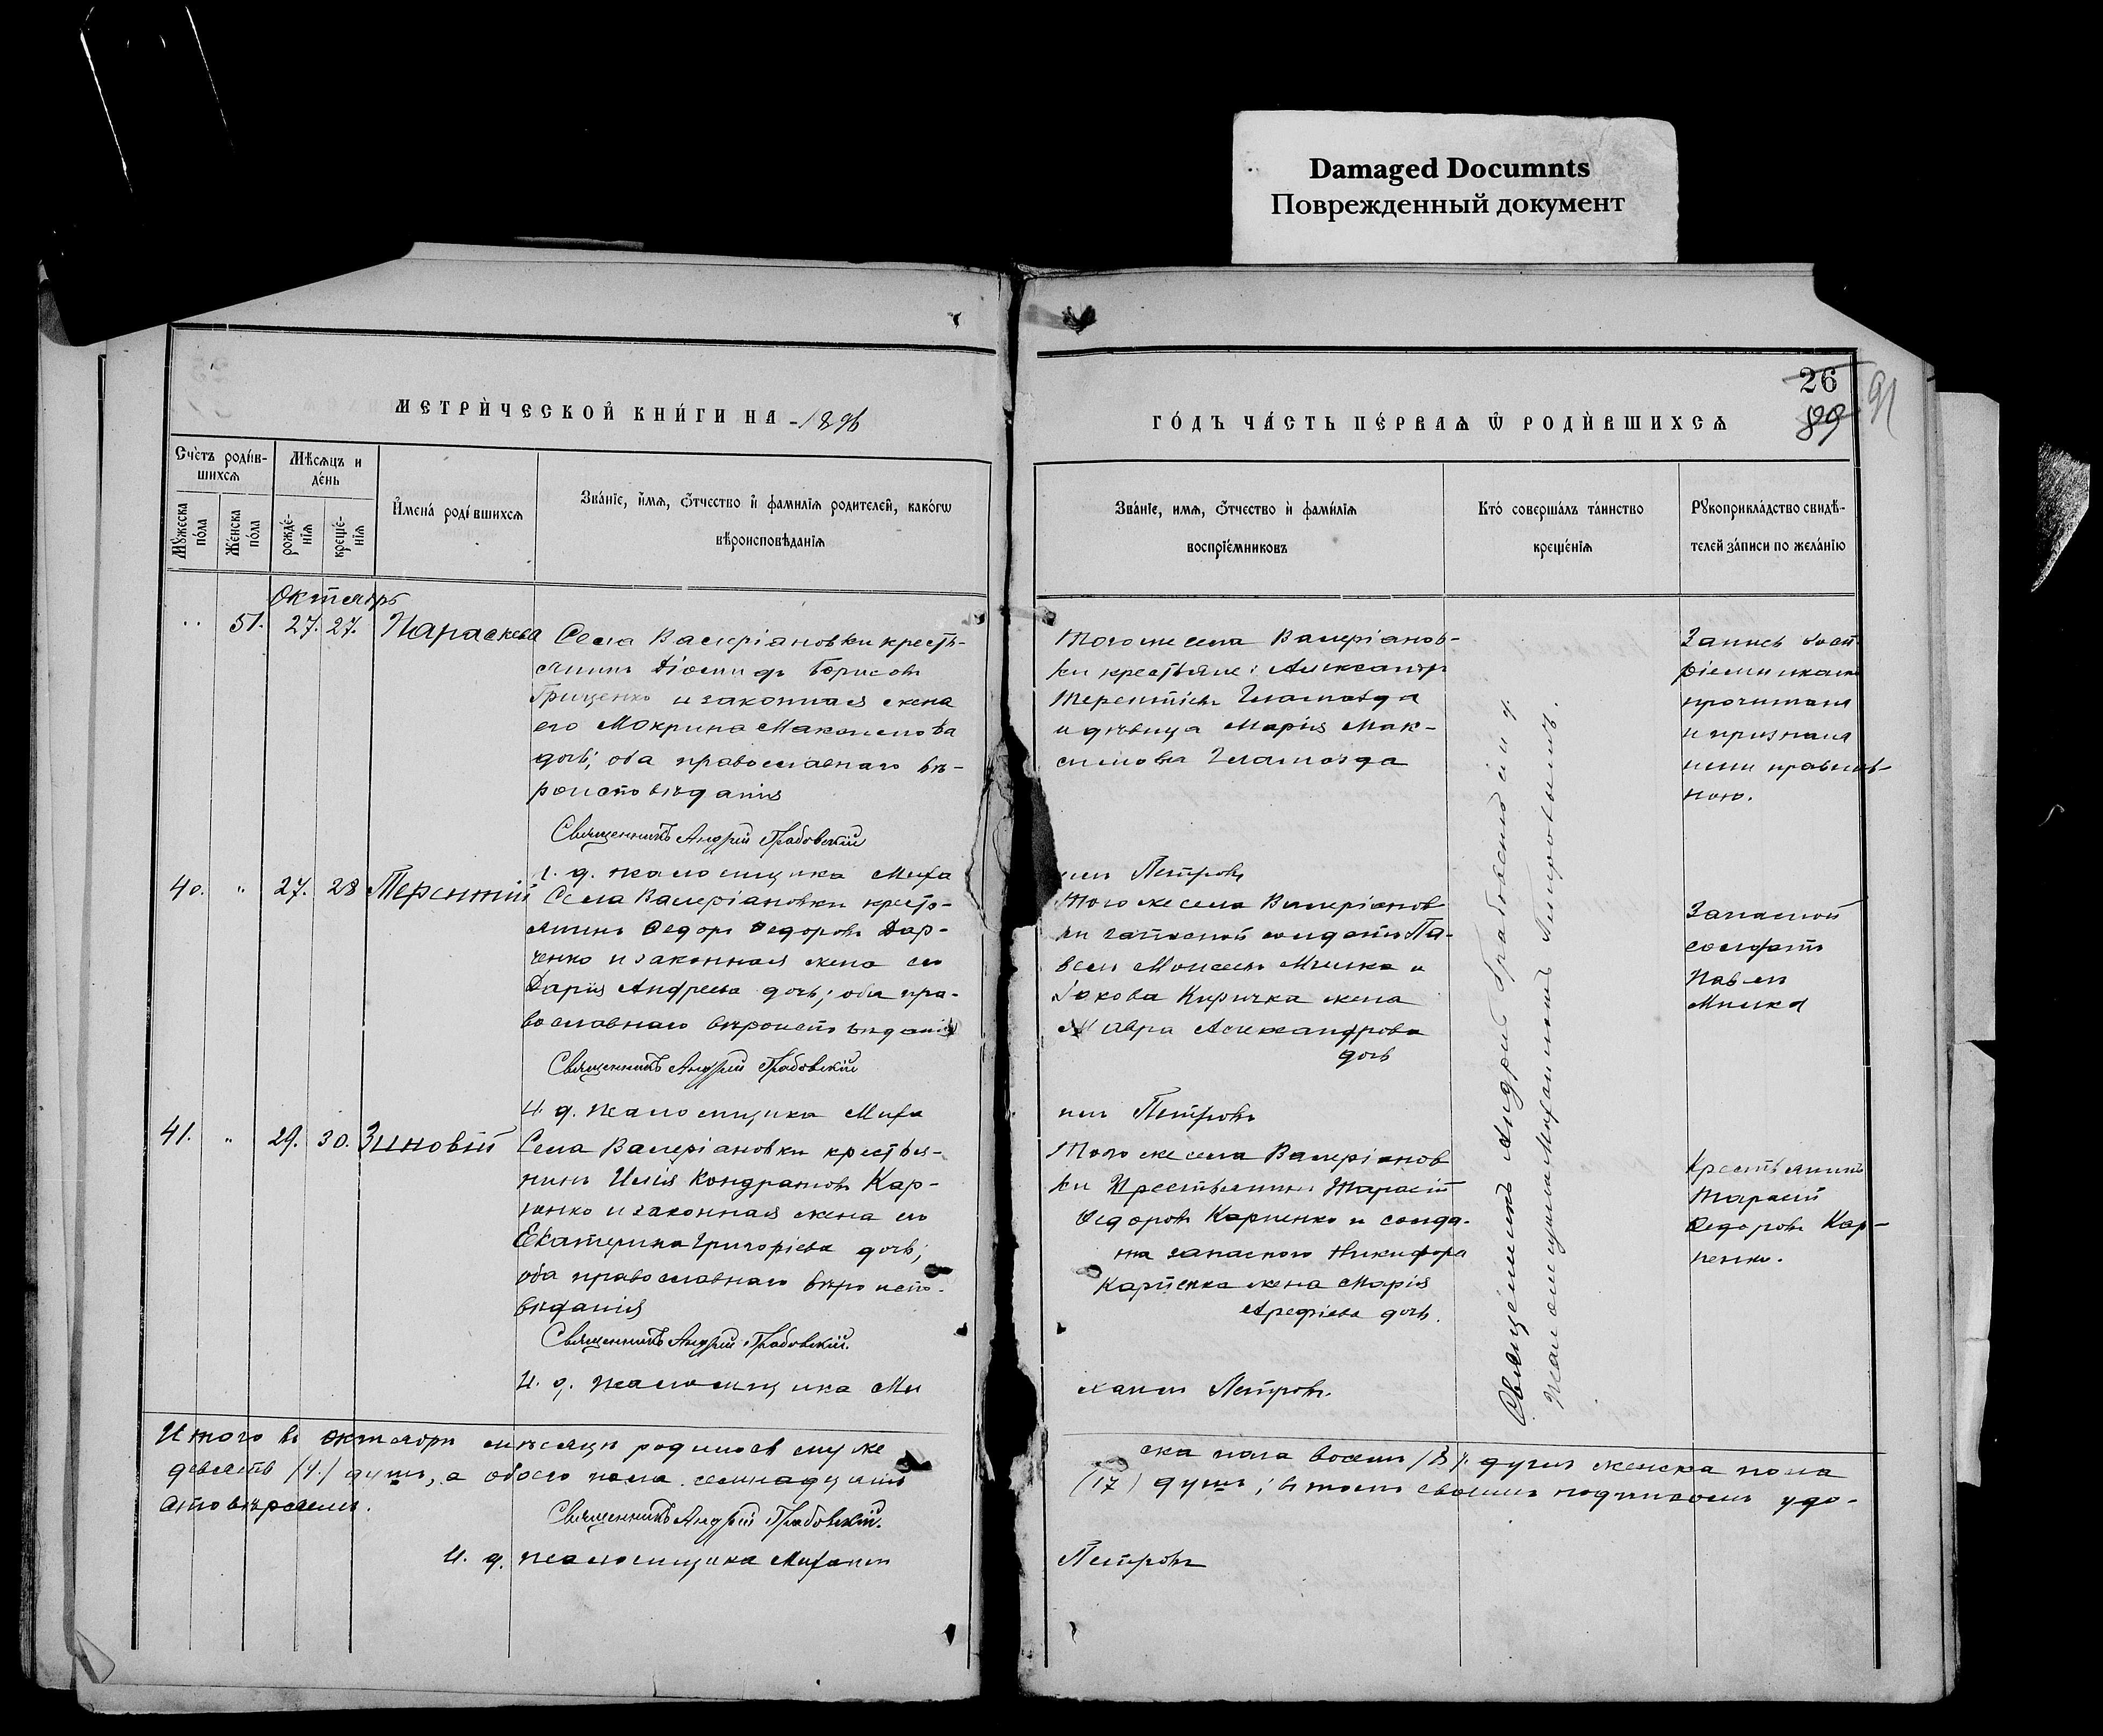 Damaged Documnts
Поврежденный документ
26
89
91
МЕТРИЧЕСКОЙ КНИГИ НА 1896
ГОДЪ ЧАСТЬ ПЕРВАЯ Ѡ РОДИВШИХСЯ
Счетъ родив-
шихся
Мѣсяцъ и
день
Мужеска
пола
Женска
пола
рожде-
нія
креще-
нія
Имена родившихся
Званіе, имя, ѿчество и фамилія родителей, какогѡ
вѣроисповѣданія
Званіе, имя, ѿчество и фамилія
воспріемниковъ
Кто совершалъ таинство
крещенія
Рукоприкладство свидѣ-
телей записи по желанію
Октябрь
51. 27. 27. Параскева
Села Валеріановки кресть-
янинъ Діомидъ Борисовъ
Гриценко и законная жена
его Мокрина Максимова
дочь; оба православнаго вѣ-
роисповѣданія
Священникъ Андрей Грабовскій
И. д. псаломщика Миха
Того же села Валеріанов-
ки крестьяне: Александръ
Терентіевъ
и дѣвица Марія Мак-
симова
илъ Петровъ
Запись восп-
ріемникамъ
прочитана
и признана
ими правиль-
ною.
40. " 27. 28 Терентій
Села Валеріановки кресть-
янинъ Ѳедоръ Ѳедоровъ
и законная жена его
Дарія Андреева дочь; оба пра-
вославнаго вѣроисповѣданія
Священникъ Андрей Грабовскій
И. д. псаломщика Миха
Того же села Валеріанов-
ки запасной солдатъ Па-
велъ Моисеевъ и
Іакова Киричка жена
Мавра Александрова
дочь
илъ Петровъ
Запасной
солдатъ
Павелъ
41. " 29. 30. Зиновій
Села Валеріановки крестья-
нинъ Илія Кондратовъ Кар-
пенко и законная жена его
Екатерина Григоріева дочь;
оба православнаго вѣроиспо-
вѣданія
Священникъ Андрей Грабовскій.
И. д. псаломщика Ми
Того же села Валеріанов
ки Крестьянинъ Тарасій
Ѳедоровъ Карпенко и солда-
та запаснаго Никифора
Карпенка жена Марія
Арефіева дочь.
хаилъ Петровъ.
Крестьянинъ
Тарасій
Ѳедоровъ Кар-
пенко.
Священникъ Андрей Грабовскій и. д.
псаломщика Михаилъ Петровъ.
Итого въ октябрѣ мѣсяцѣ родилось муже
ска пола восемь /8/; душъ женска пола
девять /9/ душъ, а обоего пола семнадцать
(17) душъ; въ томъ своимъ подписомъ удо-
стовѣряемъ.
Священникъ Андрей Грабовскій.
И. д. псаломщика Михаилъ
Петровъ